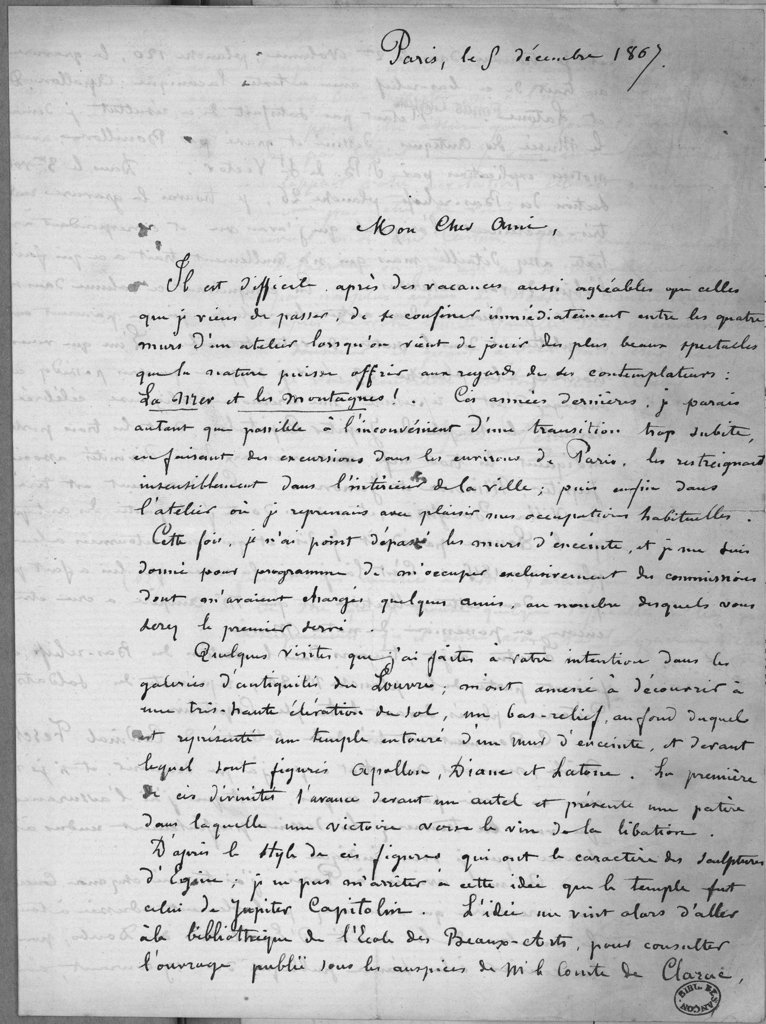 Paris, le 5 décembre 1867.
Mon Cher Ami,
Il est difficile, après des vacances aussi agréables que celles
que je viens de passer, de se confiner immédiatement entre les quatre
murs d'un atelier lorsqu'on vient de jouir des plus beaux spectacles
que la nature puisse offrir aux regards de ses contemplateurs :
La Mer et les Montagnes ! . Ces années dernières, je parais
autant que possible à l'inconvénient d'une transition trop subite,
en faisant des excursions dans les environs de Paris, les restreignant
insensiblement dans l'intérieur de la ville ; puis enfin dans
l'atelier où je reprenais avec plaisir mes occupations habituelles .
Cette fois, je n'ai point dépassé les murs d'enceinte, et je me suis
donné pour programme de m'occuper exclusivement des commissions
dont m'avaient chargés quelques amis, au nombre desquels vous
serez le premier servi .
Quelques visites que j'ai faites à votre intention dans les
galeries d'antiquités du Louvre, m'ont amené à découvrir à
une très-haute élévation du sol, un bas-relief, au fond duquel
est représenté un temple entouré d'un mur d'enceinte, et devant
lequel sont figurés Apollon, Diane et Latone . La première
de ces divinités s'avance devant un autel et présente une patère
dans laquelle une victoire verse le vin de la libation .
D'après le style de ces figures qui ont le caractère des sculptures
d'Egine, je ne pus m'arrêter à cette idée que le temple fut
celui de Jupiter Capitolin . L'idée me vint alors d'aller
à la bibliothèque de l'Ecole des Beaux-Arts, pour consulter
l'ouvrage publié sous les auspices de Mr le Comte de Clarac,
BIBL. BESANÇON